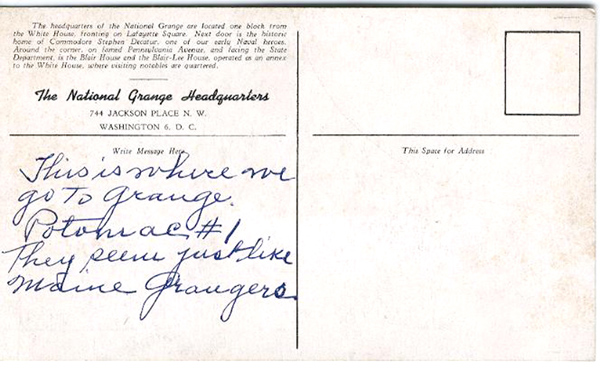 The headquarters of the National Grange are located one block from
the White House, fronting on Lafayette Square. Next door is the historic
home of Commodore Stephen Decatur, one of our early Naval heroes.
Around the corner, on famed Pennsylvania Avenue, and facing the State
Department, is the Blair House and the Blair-Lee House, operated as an annex
to the White House, where visiting notables are quartered.
The National Grange Headquarters
744 JACKSON PLACE N. W.
WASHINGTON 6, D. C.
Write Message Here
This is where we
go to Grange.
Potomac #1
They seem just like
Maine Grangers
This Space for Address